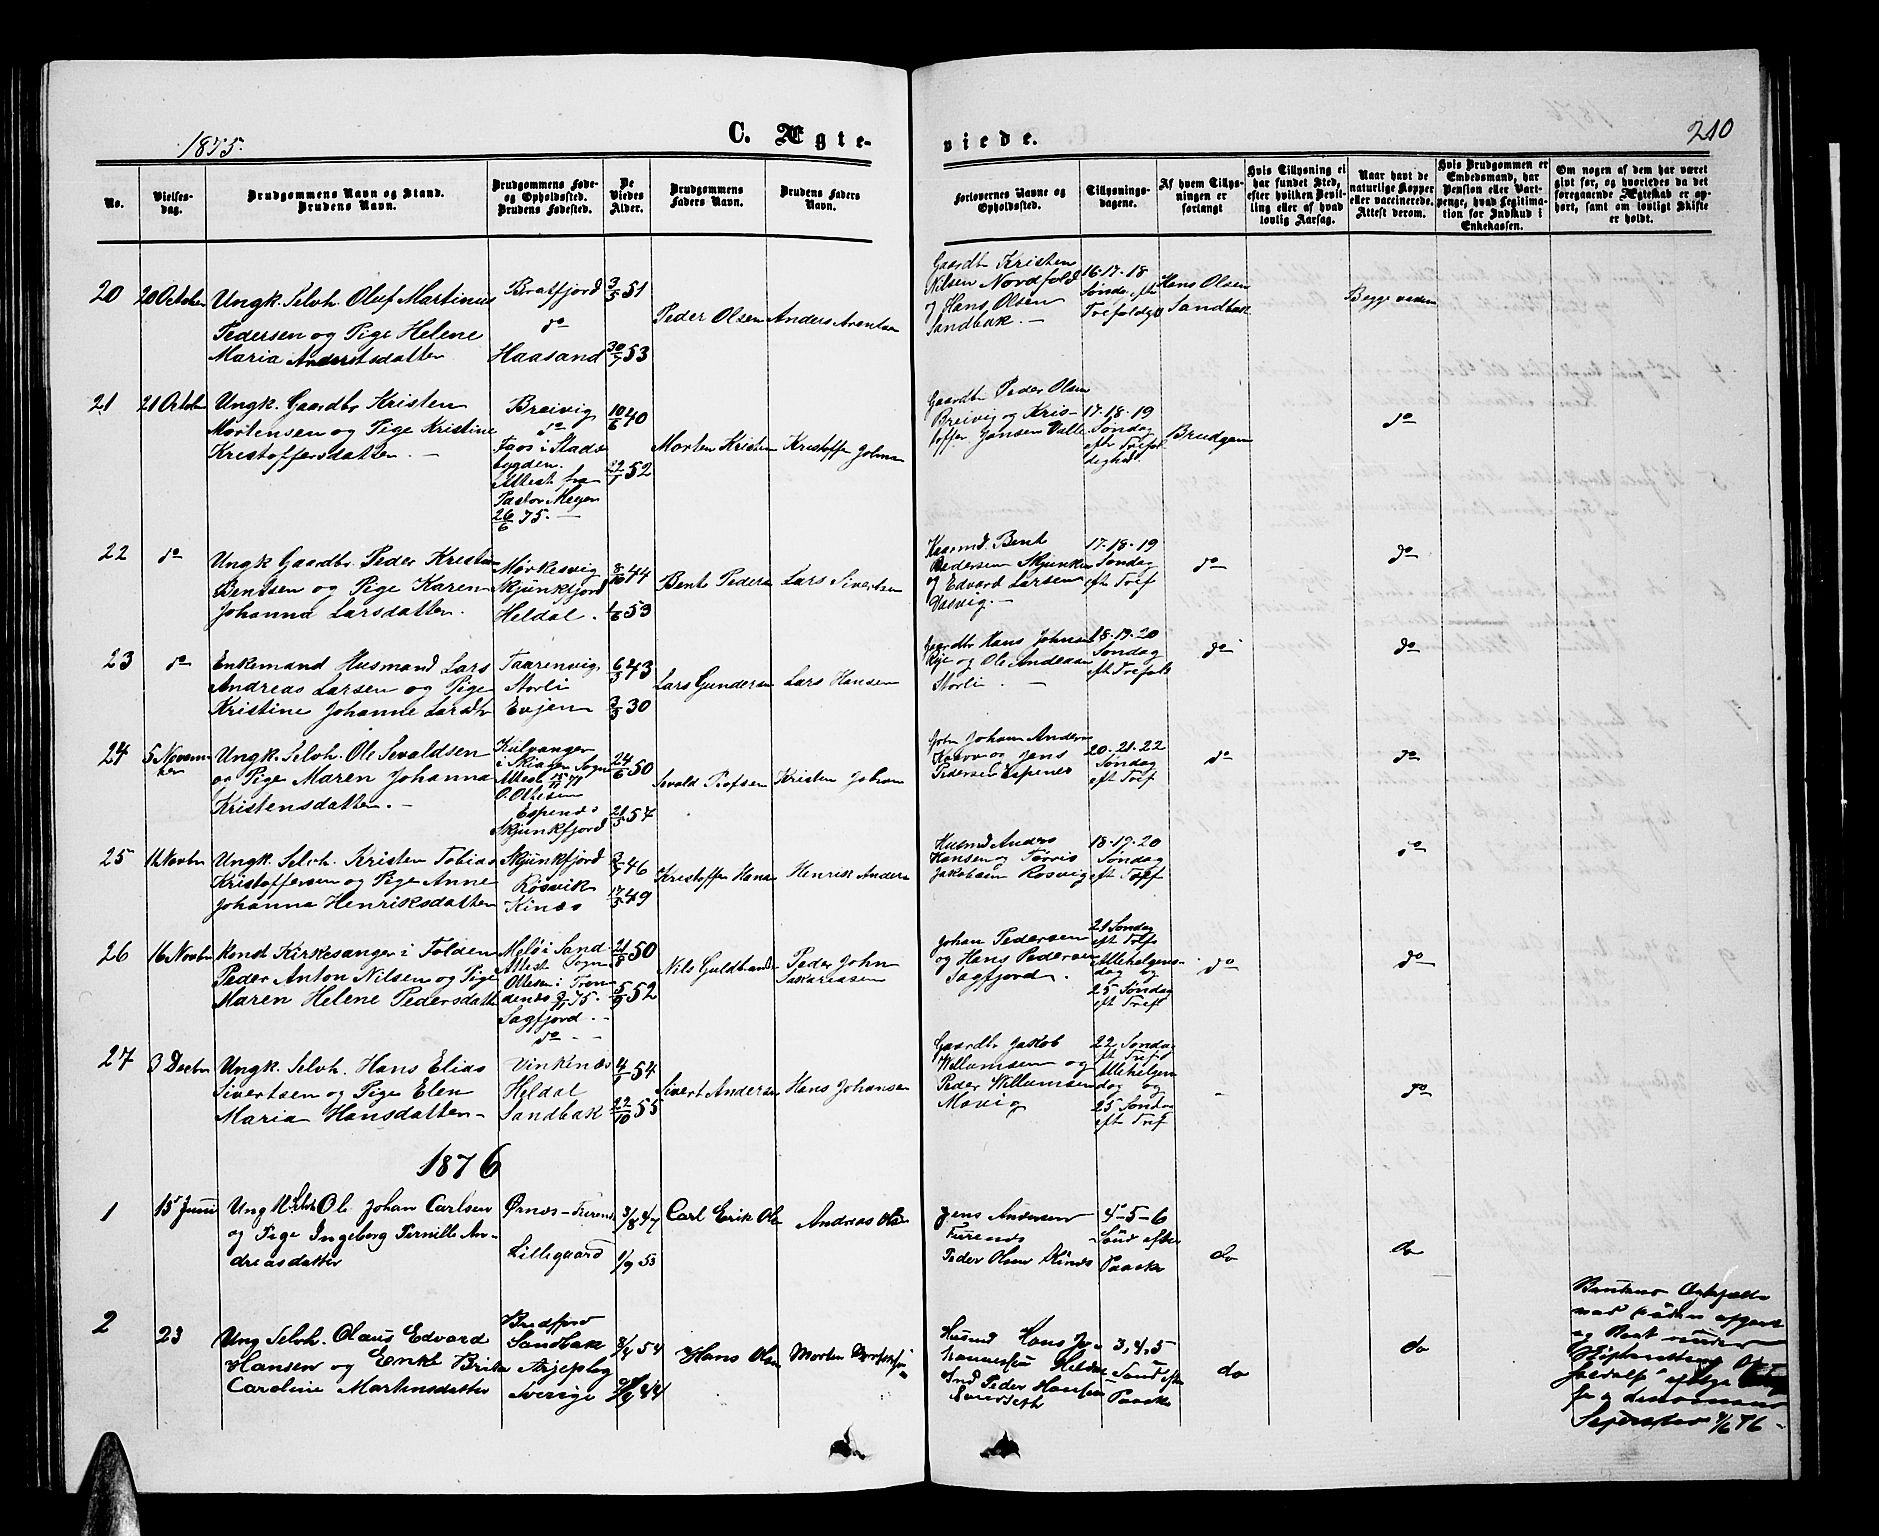 1875.
C. Ægte-
viede.
210
No.
Vielses-
dag.
Brudgommens Navn og Stand.
Brudens Navn.
Brudgommens Føde-
og Opholdssted.
Brudens Fødested.
De
Viedes
Alder.
Brudgommens
Faders Navn.
Brudens Faders
Navn.
Forlovernes Navne og
Opholdssted.
Tillysnings-
dagene.
Af hvem Tillys-
ningen er
forlangt
Hvis Tillysning ei
har fundet Sted,
efter hvilken Bevil-
ling eller af hvad
lovlig Aarsag.
Naar havt de
naturlige Kopper
eller vaccinerede.
Attest derom.
Hvis Brudgommen er
Embedsmand, har
Pension eller Vart-
penge, hvad Legitima-
tion for Indskud i
Enkekassen.
Om nogen af dem har været
givt før, og hvorledes da det
foregaaende Ægteskab er op-
hørt, samt om lovligt Skifte
er holdt.
20
20 October
Ungk. Selvh. Oluf Martinus
Pedersen og Pige Helene
Maria Anderstsdatter
Bratfjord
do
Haasand
3/5 51
30/7 53
Peder Olsen
Anders Arentsen
Gaardbr Kristen
Nilsen Nordfold
og Hans Olsen
Sandbak. —
16-17-18
Søndag eft
Trefoldgh
Hans Olsen
Sandbak
Begge vaccin
21
21 October
Ungk. Gaardbr Kristen
Mortensen og Pige Kristine
Kristoffersdatter. —
Breivig
do
Faos i Stads
bygden.
Attest fra
Pastor Meyer
26/6 75. —
10/6 40
22/1 52
Morten Kristen
Kristoffer Johna
Gaardbr Peder Olsen
Breivig og Kris-
toffer Jensen Valle
17-18-19
Søndag
eft Trefol
dighed.
Brudgom
do
22
do
Ungk Gaardbr Peder Kristian
Bentsen og Pige Karen
Johanna Larsdatter.
Mørkesvig
Skjunkfjord
Heldal.
8/10 44
1/6 53
Bent Pedersen
Lars Sivertsen
Bent
Pedersen Skjunken
og Edvard Larsen
17-18-19
Søndag
eft Tref
do
do
23
do
Enkemand Husmand Lars
Andreas Larsen og Pige
Kristine Johanne Larsdtr
Taarenvig
Storli
Evjen
6/3 43
2/3 30
Lars Gundersen
Lars Hansen
Gaardbr Hans Johnsen
Rye og Ole Andersen
Storli —
18-19-20
Søndag
eft Trefoldh
do
do
24
5 Novem-
ber
Ungk. Selvh. Ole Sevaldsen
og Pige Maren Johanna
Kristensdatter. —
Kulvanger
i Skjagen Sogn
Attest 15/11 71
O. Ottesen
Espenes
Skjunkfjord
24/6 50
21/5 54
Sevald Rafsen
Kristen Johan
Johan Anders
og Jens
Pedersen Espenes
20-21-22
Søndag
eft Tref
do
do
25
11 Novbr
Ungk. Selvh. Kristen Tobias
Kristoffersen og Pige Anne
Johanna Henriksdatter
Skjunkfjord
Røsvik
Kines
2/7 46
17/3 49
Kristoffer Hans
Henrik Anders
Husmd Anders
Hansen og Torris
Jakobsen Rosvig
18-19-20
Søndag
eft Tref
do
26
16 Novbr
konst Kirkesanger i Folden
Peder Anton Nilsen og Pige
Maren Helene Pedersdatt
Melø i Sand-
Attest Sogn
Ottesen i Tron-
denæs 9/11 75. —
Sagfjord. —
do — —
21/8 50
5/9 52
Nils Guldbrands
Peder John
Sakariasen
Johan Pedersen
og Hans Pedersen
Sagfjord.
21 Søndag
eft Trefo
Allehelgens-
dag og
25 Søndag
eft Tref
do
do
27
3 Decbr
Ungk. Selvh. Hans Elias
Sivertsen og Pige Elen
Maria Hansdatter—
Vinkenæs
Heldal
Sandbak
4/1 54
22/10 55
Sivert Andersen
Hans Johansen
Gaardbr Jakob
Willumsen og
Peder Willumsen
Movig
22 Søndag
eft Tref
Allehelgen
dag og
25 Søndag
eft Tref
-
do
1876
1
15 Juni
Ungk Selvh Ole Johan Carlsen
og Pige Ingeborg Pernille An-
dreasdatter
Ørnæs - Furenes
Lillegaard
3/8 47
1/9 53
Carl Erik Ols
Andreas Ols
Jens Andersen
Furenes
Peder Olsen
4-5-6
Sønd efter
Paaske
do
do
2
23
Ung Selvh. Olaus Edvard
Hansen og Enke Brita
Caroline Martinsdatter
Bredfjord
Sandbak
Arjeplog
Sverige
8/4 54
44
Hans Olsen
Morten
Husmd Hans Jo-
hannessen Heldal
Peder Hansen
3, 4, 5
Sønd efter
Paaske
do
do
Brudens
9/6 76 -